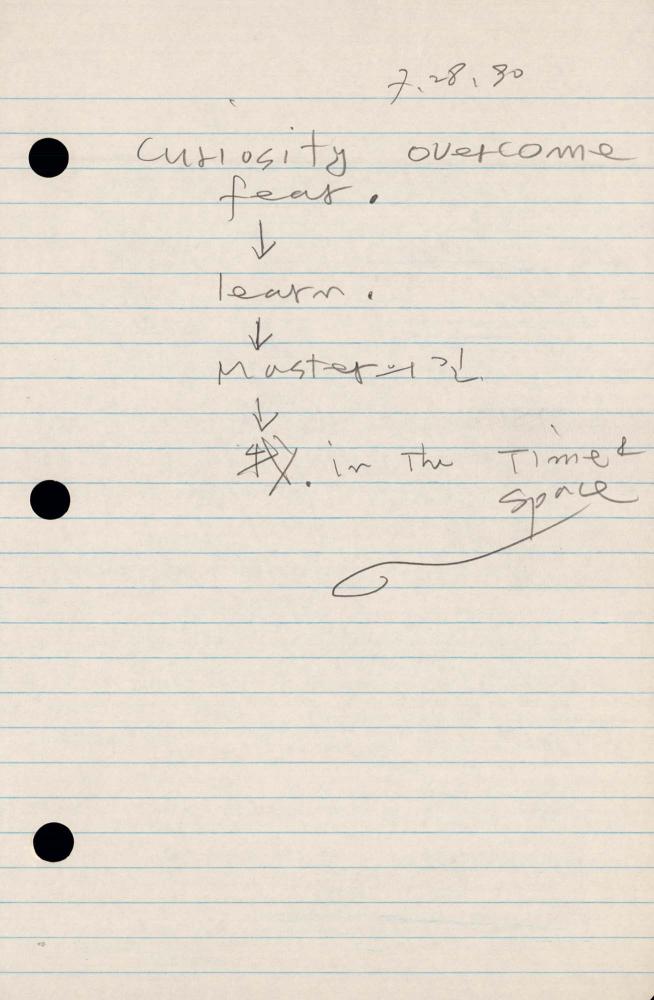 7.28.80
Curiosity overcome
fear.
↓
learn.
↓
Master의 길
↓
in the Time &
space